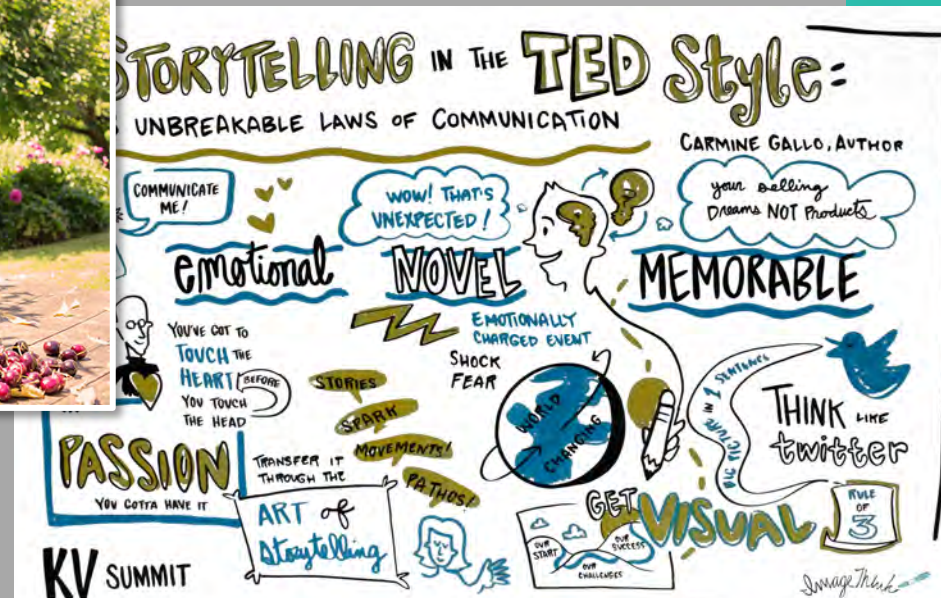 STORYTELLING IN THE TED Style:
UNBREAKABLE LAWS OF COMMUNICATION
CARMINE GALLO, AUTHOR
COMMUNICATE
ME!
WOW! THAT'S
UNEXPECTED!
your selling
Dreams NOT Products
emotional
NOVEL
MEMORABLE
YOU'VE GOT TO
TOUCH THE
HEART BEFORE
YOU TOUCH
THE HEAD
STORIES
SPARK
MOVEMENTS!
PATHOS!
EMOTIONALLY
CHARGED EVENT
SHOCK
FEAR
WORLD
CHANGING
BIG PICTURE IN 1 SENTENCE
THINK LIKE
twitter
RULE
OF
3
PASSION
YOU GOTTA HAVE IT
TRANSFER IT
THROUGH THE
ART of
Storytelling
GET VISUAL
OUR
START
OUR
SUCCESS
OUR
CHALLENGES
KV SUMMIT
ImageThink